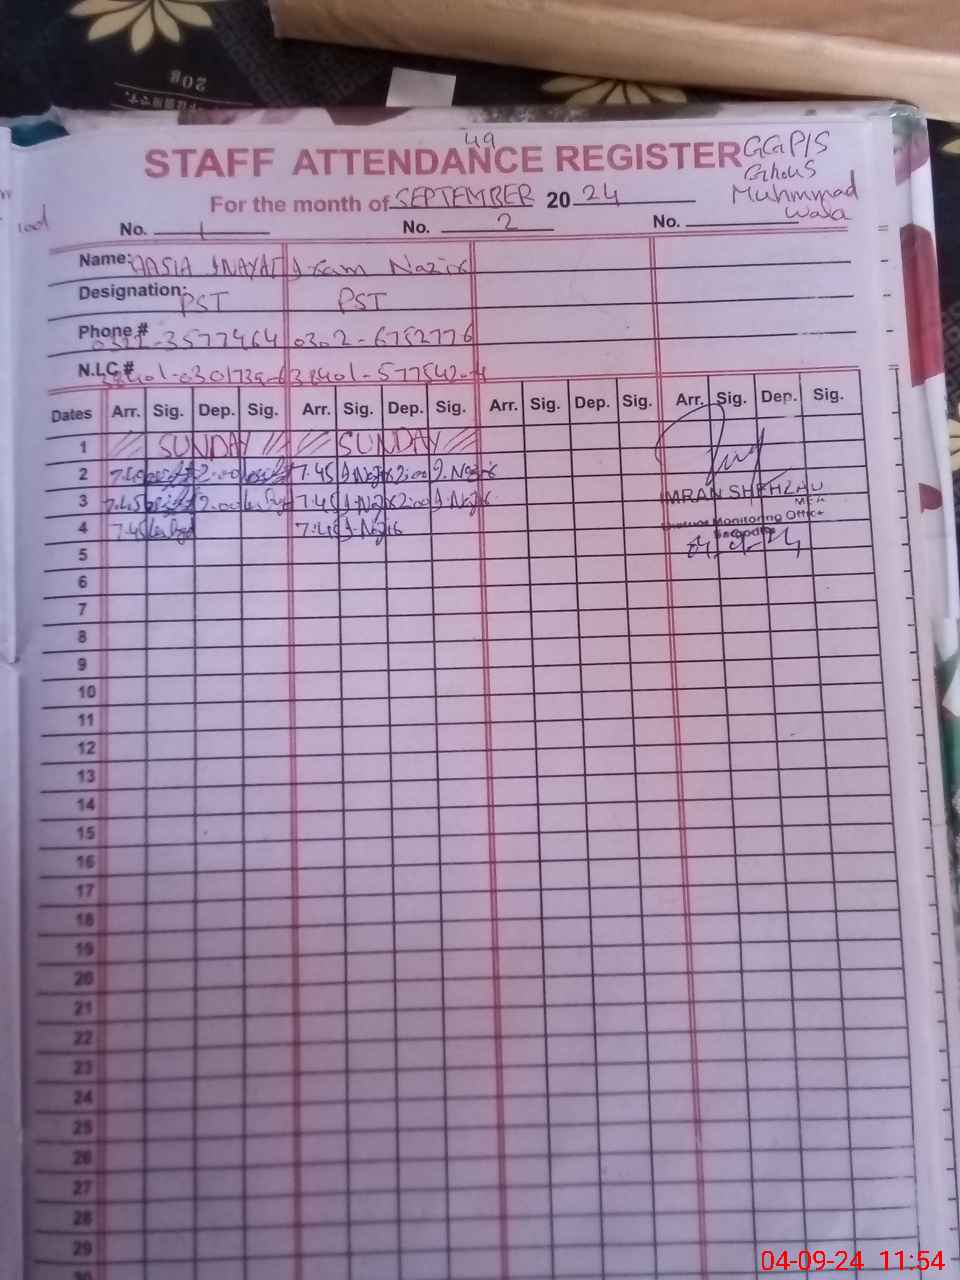 20g
49
STAFF ATTENDANCE REGISTER GGP/S
Ghous
For the month of SEPTEMBER 20 24 Muhmmad
Wala
No. 1 No. 2 No.
Name: AASIA INAYAT Iram Nazir
Designation: PST PST
Phone # 3577464 0302-6752776
N.I.C.# 38401-577542-4
Dates Arr. Sig. Dep. Sig. Arr. Sig. Dep. Sig. Arr. Sig. Dep. Sig. Arr. Sig. Dep. Sig.
1 SUNDAY SUNDAY
2 7.40 2.00 7.45 I.Nazir 2.00 I.Nazir
3 7.45 2.00 7.45 I.Nazir 2.00 I.Nazir
IMRAN SHEHZAD
MEA
4 7.45 7.45 I.Nazir
Monitoring Office
5
6
7
8
9
10
11
12
13
14
15
16
17
18
19
20
21
22
23
24
25
26
27
28
29
30
04-09-24 11:54